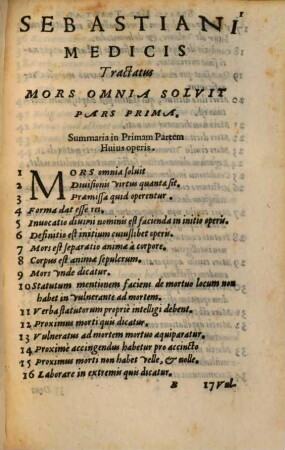 1
SEBASTIANI
MEDICIS
Tractatus
MORS OMNIA SOLVIT
PARS PRIMA.
Summaria in Primam Partem
Huius operis.
1 MORS omnia soluit
2 Diuisionis virtus quanta sit.
3 Præmissa quid operentur.
4 Forma dat esse rei.
5 Inuocatio diuini nominis est facienda in initio operis.
6 Definitio est initium cuiuslibet operis.
7 Mors est separatio animæ à corpore.
8 Corpus est animæ sepulcrum.
9 Mors vnde dicatur.
10 Statutum mentionem faciens de mortuo locum non
habet in vulnerante ad mortem.
11 Verba statutorum proprie intelligi debent.
12 Proximus morti quis dicatur.
13 Vulneratus ad mortem mortuo æquiparatur.
14 Proxime accingendus habetur pro accincto
15 Proximus morti non habet velle, & nolle.
16 Laborare in extremis quis dicatur.
B 17 Vul-